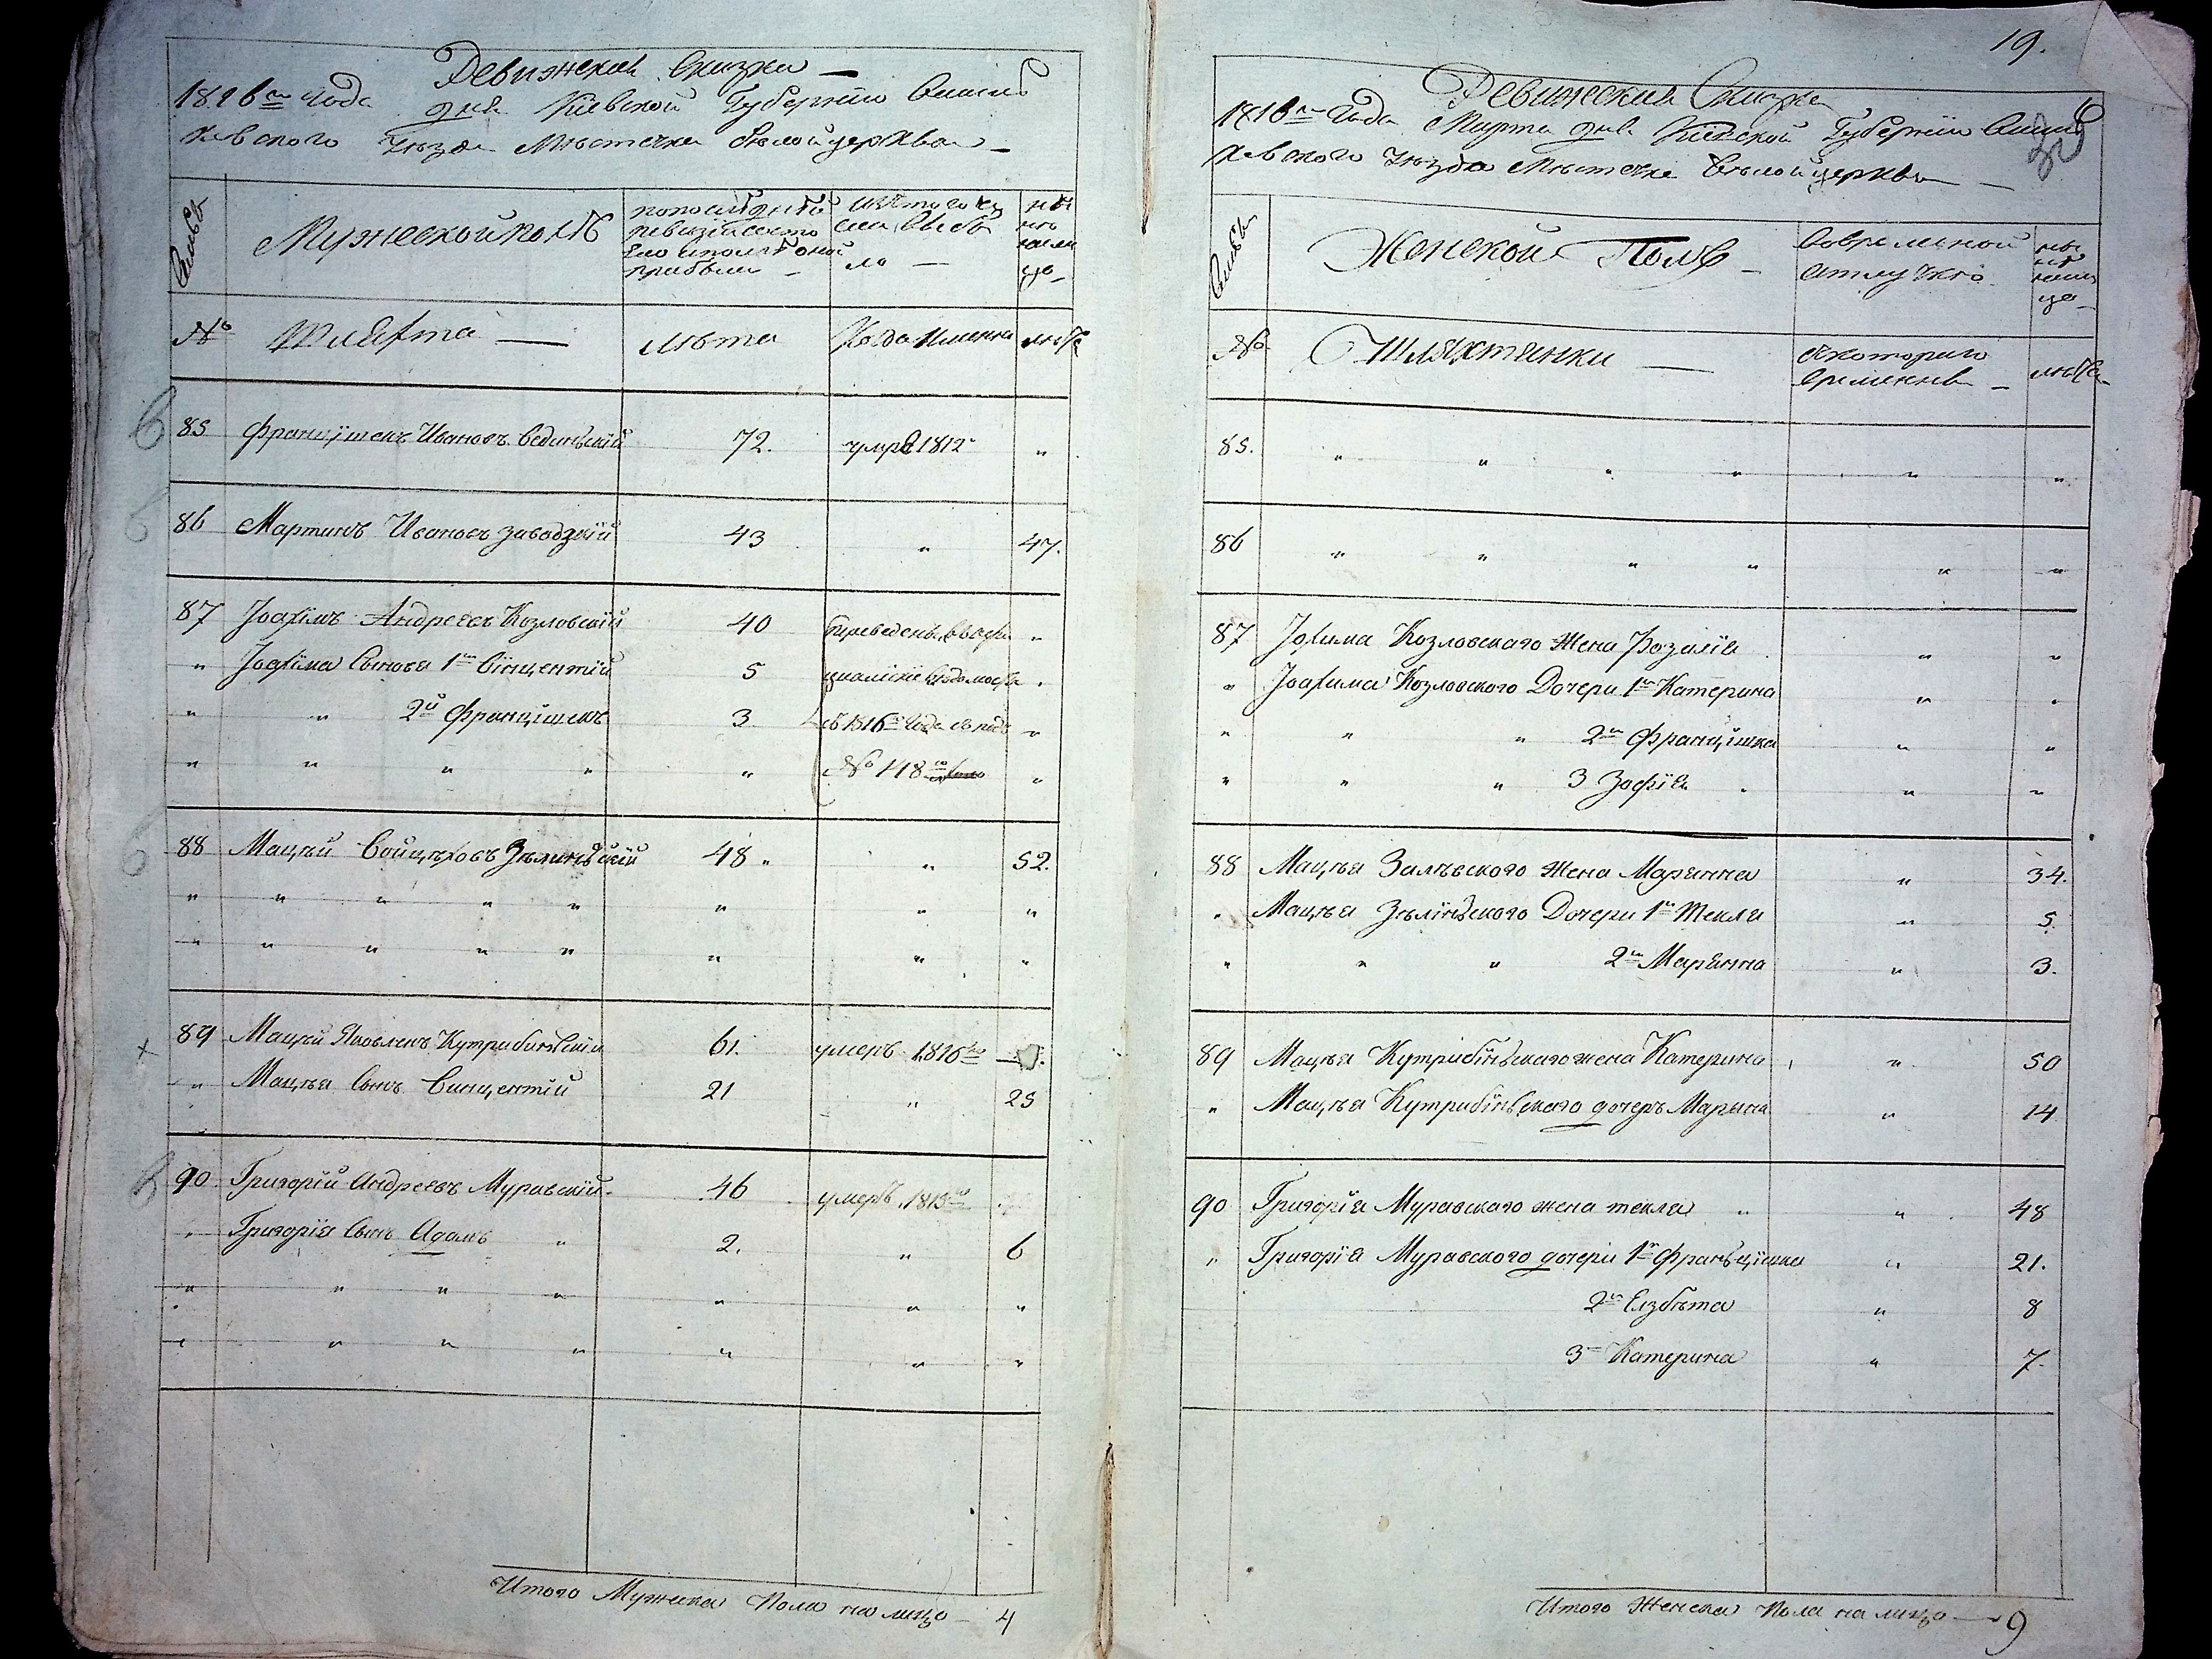 Ревижская Сказка
1816го года дня Киевской Губернии Василь
ковского уезда Местечка Белойцеркви
Семьи
Мужеской полъ
попоследней
ревизии состо
яло и после оной
прибыли
изтого чи
сла выбы
ло
ны
не
на ли
цо
№
Шляхта
лета
Когда именно
летъ
85 Францишекъ Ивановъ Вединский 72. умре 1812 "
86 Мартинъ Ивановъ Заводзкий 43 " 47.
87 Іоахимъ Андреевъ Козловский 40 "
" Іоахима Сыновья 1й Винцентий 5 "
" " 2й Францишекъ 3 съ 1816го Года подъ "
" " " " " № 118мъ "
88 Мацѣй Войцѣховъ Зѣлинский 48 " " 52.
" " " " " " " "
" " " " " " " "
89 Мацѣй Яковлевъ Кутрибинский 61. умеръ 1816го
" Мацѣя Сынъ Винцентий 21 " 25
90 Григорій Андреевъ Муравский 46 умеръ 1813го
" Григорія Сынъ Адамъ " 2. " 6
" " " " " " "
" " " " " " "
Итого Мужеска Пола на лицо — 4
19.
Ревижская Сказка
1816го Года Марта дня Киевской Губернии Василь
ковского уезда Местечка Белойцеркви
Семьи
Женской Полъ
Вовременной
отлучке
ны
не
на ли
цо
№
Шляхтянки
скоторого
времени
летъ
85. " " " " " "
86 " " " " " "
87 Іохима Козловскаго Жена Розалія " "
" Іоахима Козловского Дочери 1я Катерина " "
" " " 2я Францишка " "
" " " 3 Зофія " "
88 Мацѣя Залѣвского Жена Марянна " 34.
" Мацѣя Зѣлинского Дочери 1я Текля " 5.
" " " 2я Марянна " 3.
89 Мацѣя Кутрибинскаго жена Катерина " 50
" Мацѣя Кутрибинскаго дочеръ Марина " 14
90 Григорія Муравскаго жена текля " " 48
" Григорія Муравского дочери 1я Францишка " 21.
2я Елзбѣта " 8
3 Катерина " 7.
Итого Женска Пола на лицо — 9